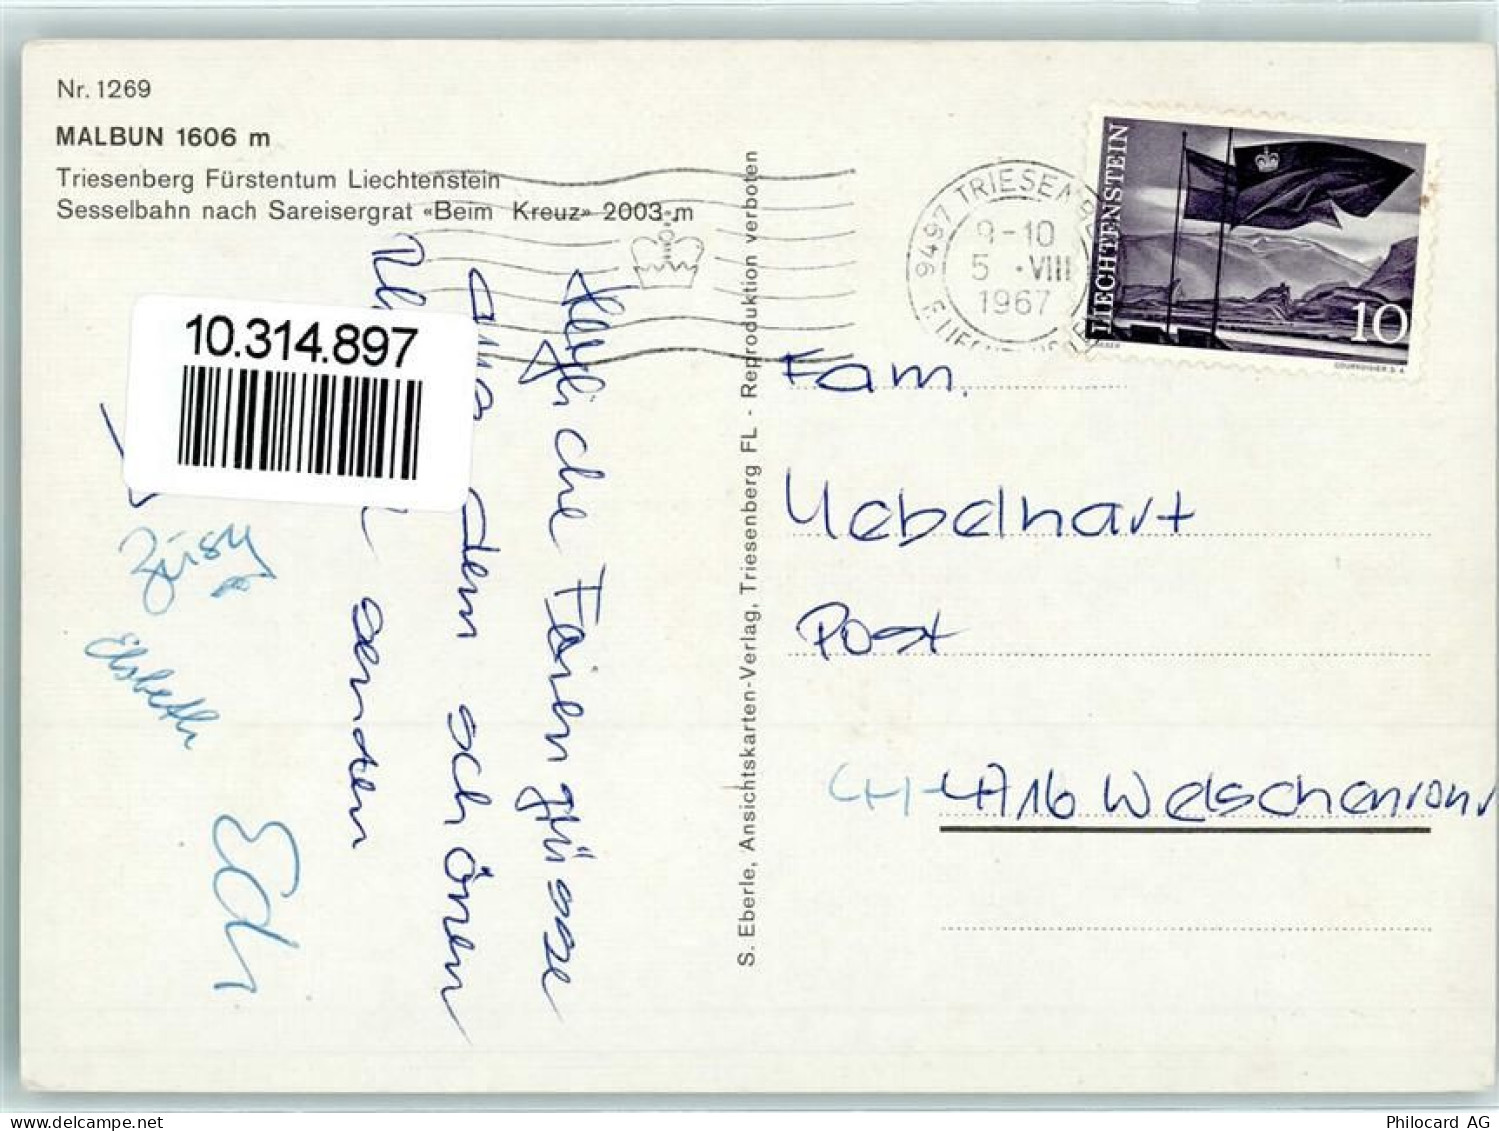 Nr. 1269
MALBUN 1606 m
Triesenberg Fürstentum Liechtenstein
Sesselbahn nach Sareisergrat «Beim Kreuz» 2003 m
10.314.897
Herzliche Feriengrüsse
aus dem schönen
senden
Züsy
Elsbeth
Edi
S. Eberle, Ansichtskarten-Verlag, Triesenberg FL - Reproduktion verboten
9497 TRIESENB
9-10
5 . VIII
1967
LIECHTENSTEIN
10
COURVOISIER S.A.
Fam.
Uebelhart
Post
CH-4716 Welschenrohr
delcampe.net
Philocard AG